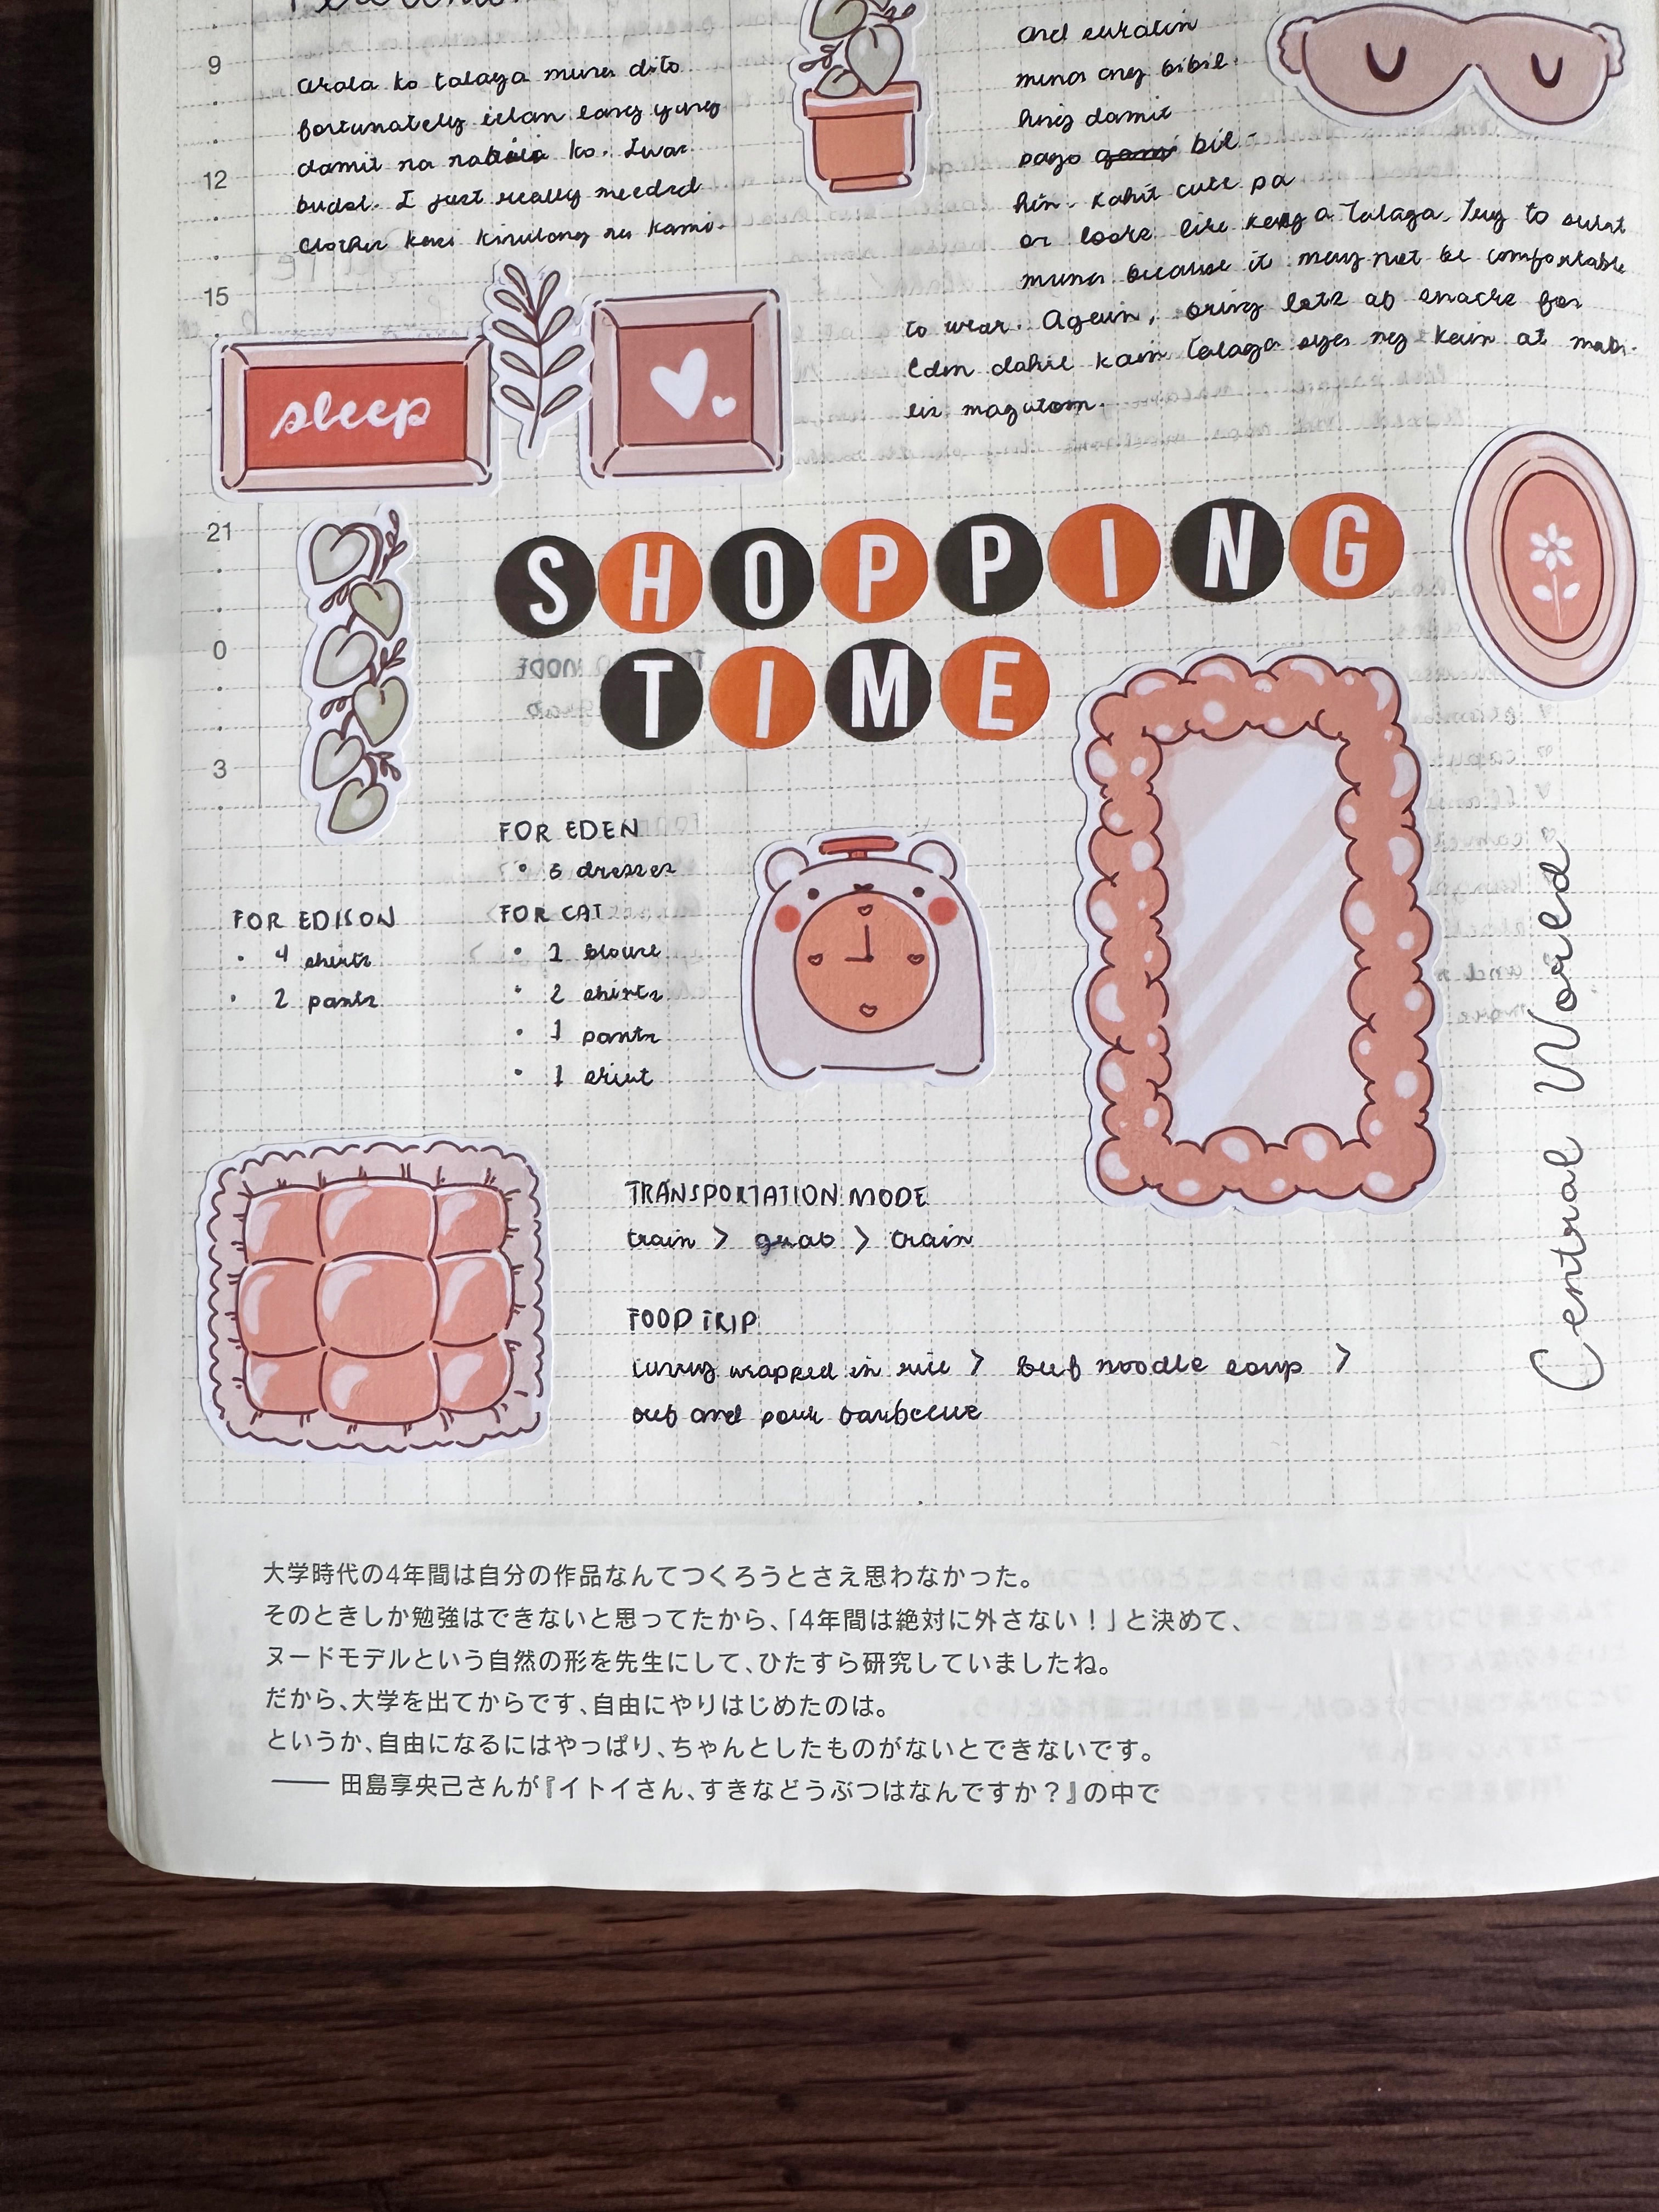 9
12
15
21
0
3
ko talaga muna dito
fortunately ilan lang yung
damit na nabili ko. Iwas
budol. I just really needed
clothes kasi kinulang na kami.
and suratin
muna ang bibil-
hing damit
bago bil-
hin. Kahit cute pa
or looks like keri a talaga. Try to surat
muna because it may not be comfortable
to wear. Again, bring lots of snacks for
Eden dahil kain talaga siya ng kain at mabi-
lis magutom.
sleep
SHOPPING
TIME
FOR EDEN
• 6 dresses
FOR EDISON
• 4 shirts
• 2 pants
FOR CAT
• 2 blouse
• 2 shirts
• 1 pants
• 1 skirt
Central World
TRANSPORTATION MODE
train > grab > train
FOOD TRIP
curry wrapped in rice > beef noodle soup >
beef and pork barbecue
大学時代の4年間は自分の作品なんてつくろうとさえ思わなかった。
そのときしか勉強はできないと思ってたから、「4年間は絶対に外さない!」と決めて、
ヌードモデルという自然の形を先生にして、ひたすら研究していましたね。
だから、大学を出てからです、自由にやりはじめたのは。
というか、自由になるにはやっぱり、ちゃんとしたものがないとできないです。
―― 田島享央己さんが『イトイさん、すきなどうぶつはなんですか?』の中で